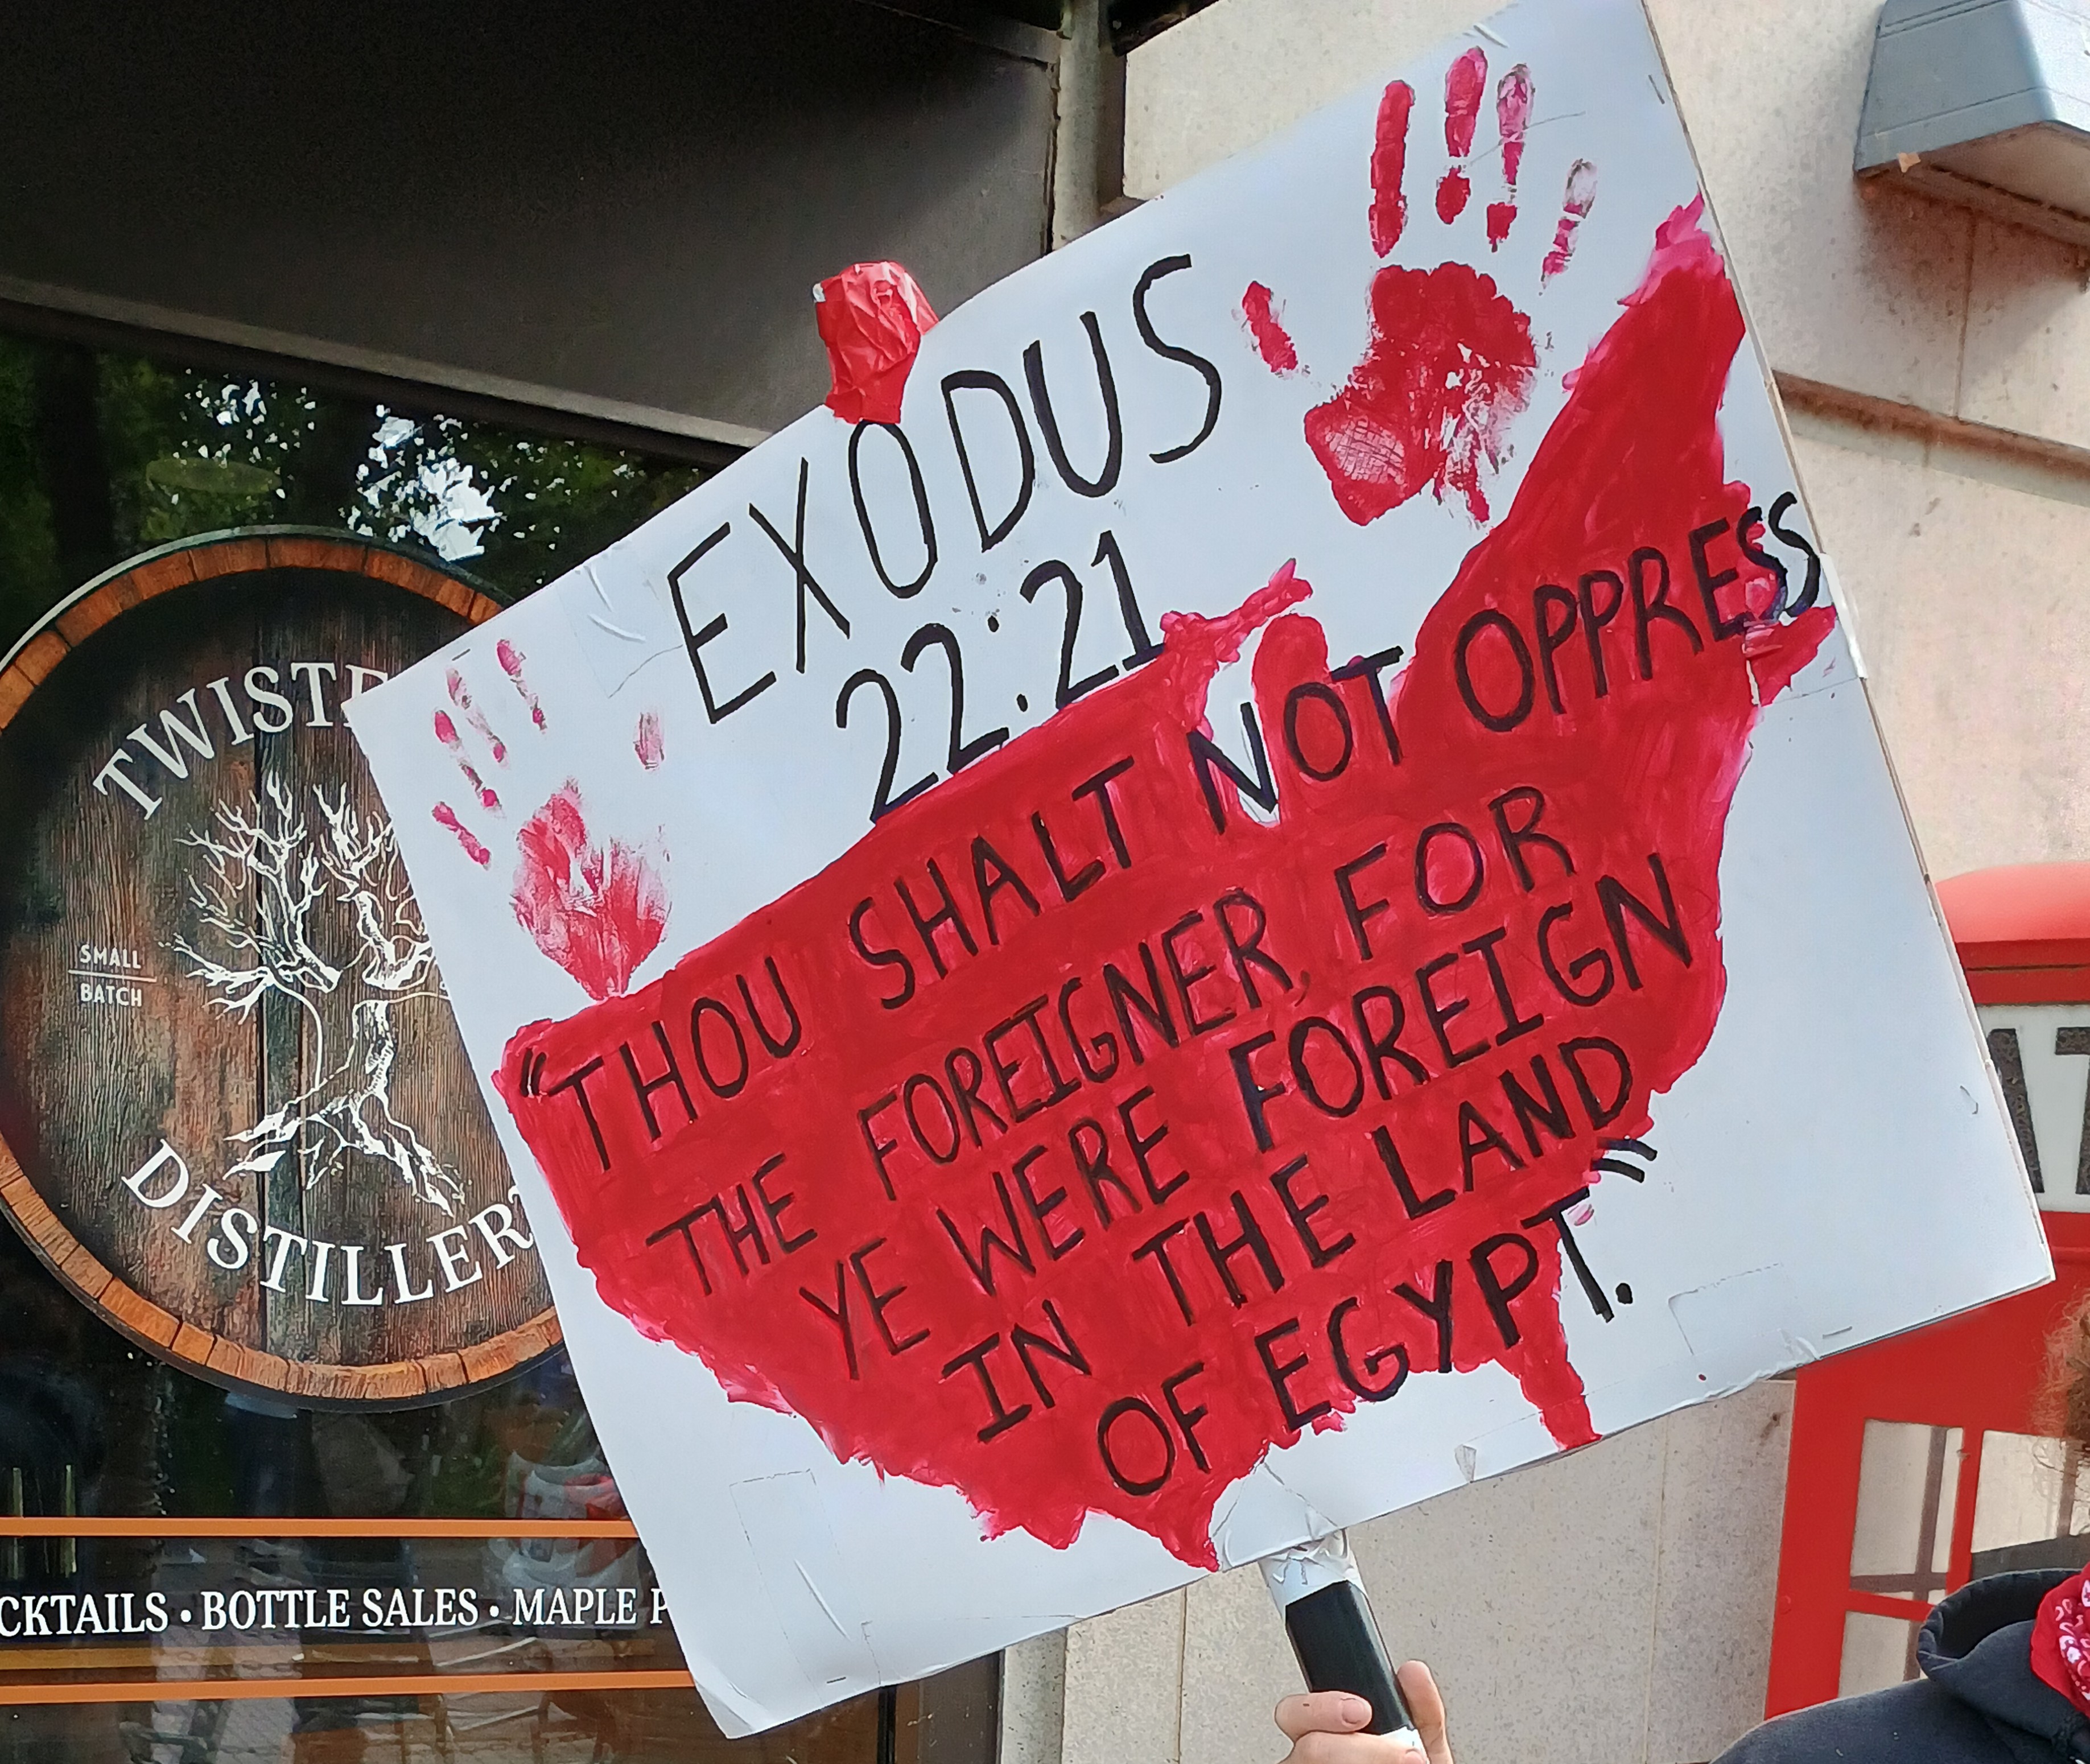 EXODUS
22:21
"THOU SHALT NOT OPPRESS
THE FOREIGNER, FOR
YE WERE FOREIGN
IN THE LAND
OF EGYPT."
TWISTE
SMALL
BATCH
DISTILLER
CKTAILS • BOTTLE SALES • MAPLE P
AT